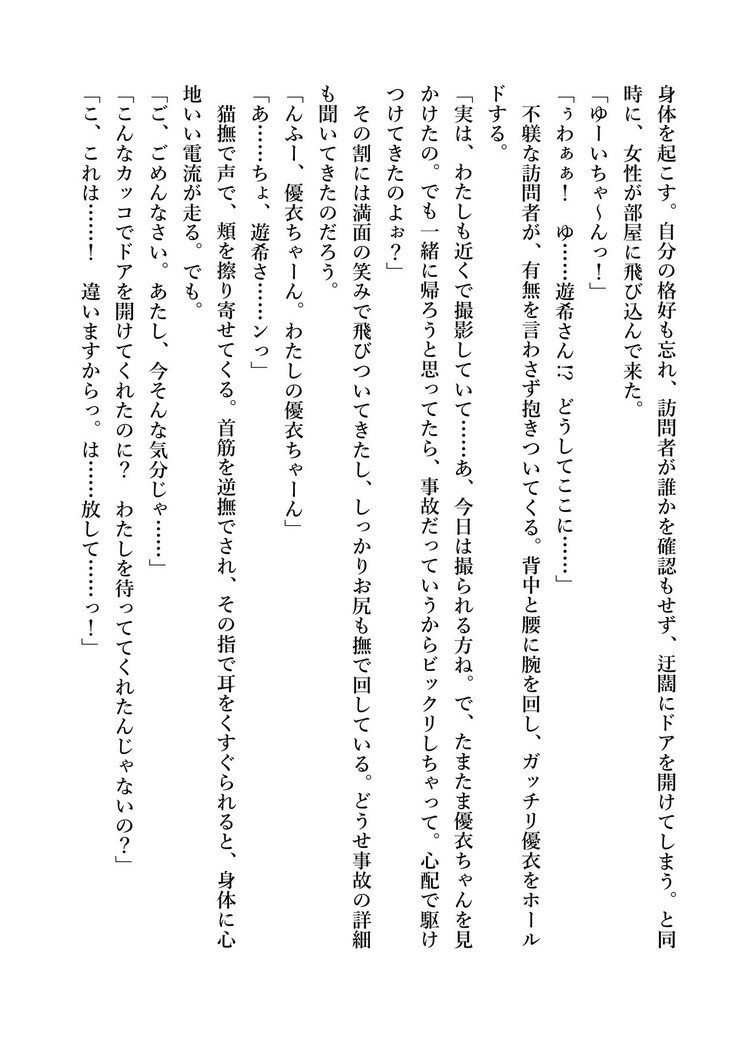 身体を起こす。自分の格好も忘れ、訪問者が誰かを確認もせず、迂闊にドアを開けてしまう。と同
時に、女性が部屋に飛び込んで来た。
「ゆーいちゃ～んっ！」
「ぅわぁぁ！　ゆ……遊希さん!?　どうしてここに……」
　不躾な訪問者が、有無を言わさず抱きついてくる。背中と腰に腕を回し、ガッチリ優衣をホール
ドする。
「実は、わたしも近くで撮影していて……あ、今日は撮られる方ね。で、たまたま優衣ちゃんを見
かけたの。でも一緒に帰ろうと思ってたら、事故だっていうからビックリしちゃって。心配で駆け
つけてきたのよぉ？」
　その割には満面の笑みで飛びついてきたし、しっかりお尻も撫で回している。どうせ事故の詳細
も聞いてきたのだろう。
「んふー、優衣ちゃーん。わたしの優衣ちゃーん」
「あ……ちょ、遊希さ……ンっ」
　猫撫で声で、頬を擦り寄せてくる。首筋を逆撫でされ、その指で耳をくすぐられると、身体に心
地いい電流が走る。でも。
「ご、ごめんなさい。あたし、今そんな気分じゃ……」
「こんなカッコでドアを開けてくれたのに？　わたしを待っててくれたんじゃないの？」
「こ、これは……！　違いますからっ。は……放して……っ！」